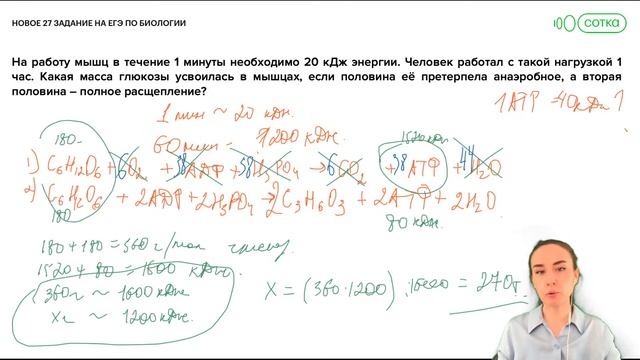 НОВОЕ 27 ЗАДАНИЕ НА ЕГЭ ПО БИОЛОГИИ
сотка
На работу мышц в течение 1 минуты необходимо 20 кДж энергии. Человек работал с такой нагрузкой 1
час. Какая масса глюкозы усвоилась в мышцах, если половина её претерпела анаэробное, а вторая
половина – полное расщепление?
1 мин ~ 20 кДж.
1 АТР = 40 кДж ?
60 мин = 1200 кДж.
180 1520 кДж
1) C6H12O6 + 6O2 + 38АДФ + 38H3PO4 → 6CO2 + 38АТФ + 44H2O
2) C6H12O6 + 2АДФ + 2H3PO4 → 2C3H6O3 + 2АТФ + 2H2O
180 80 кДж.
180 + 180 = 360 г/моль
1520 + 80 = 1600 кДж.
360г ~ 1600 кДж
X = (360·1200) : 1600 = 270г.
xг ~ 1200 кДж.